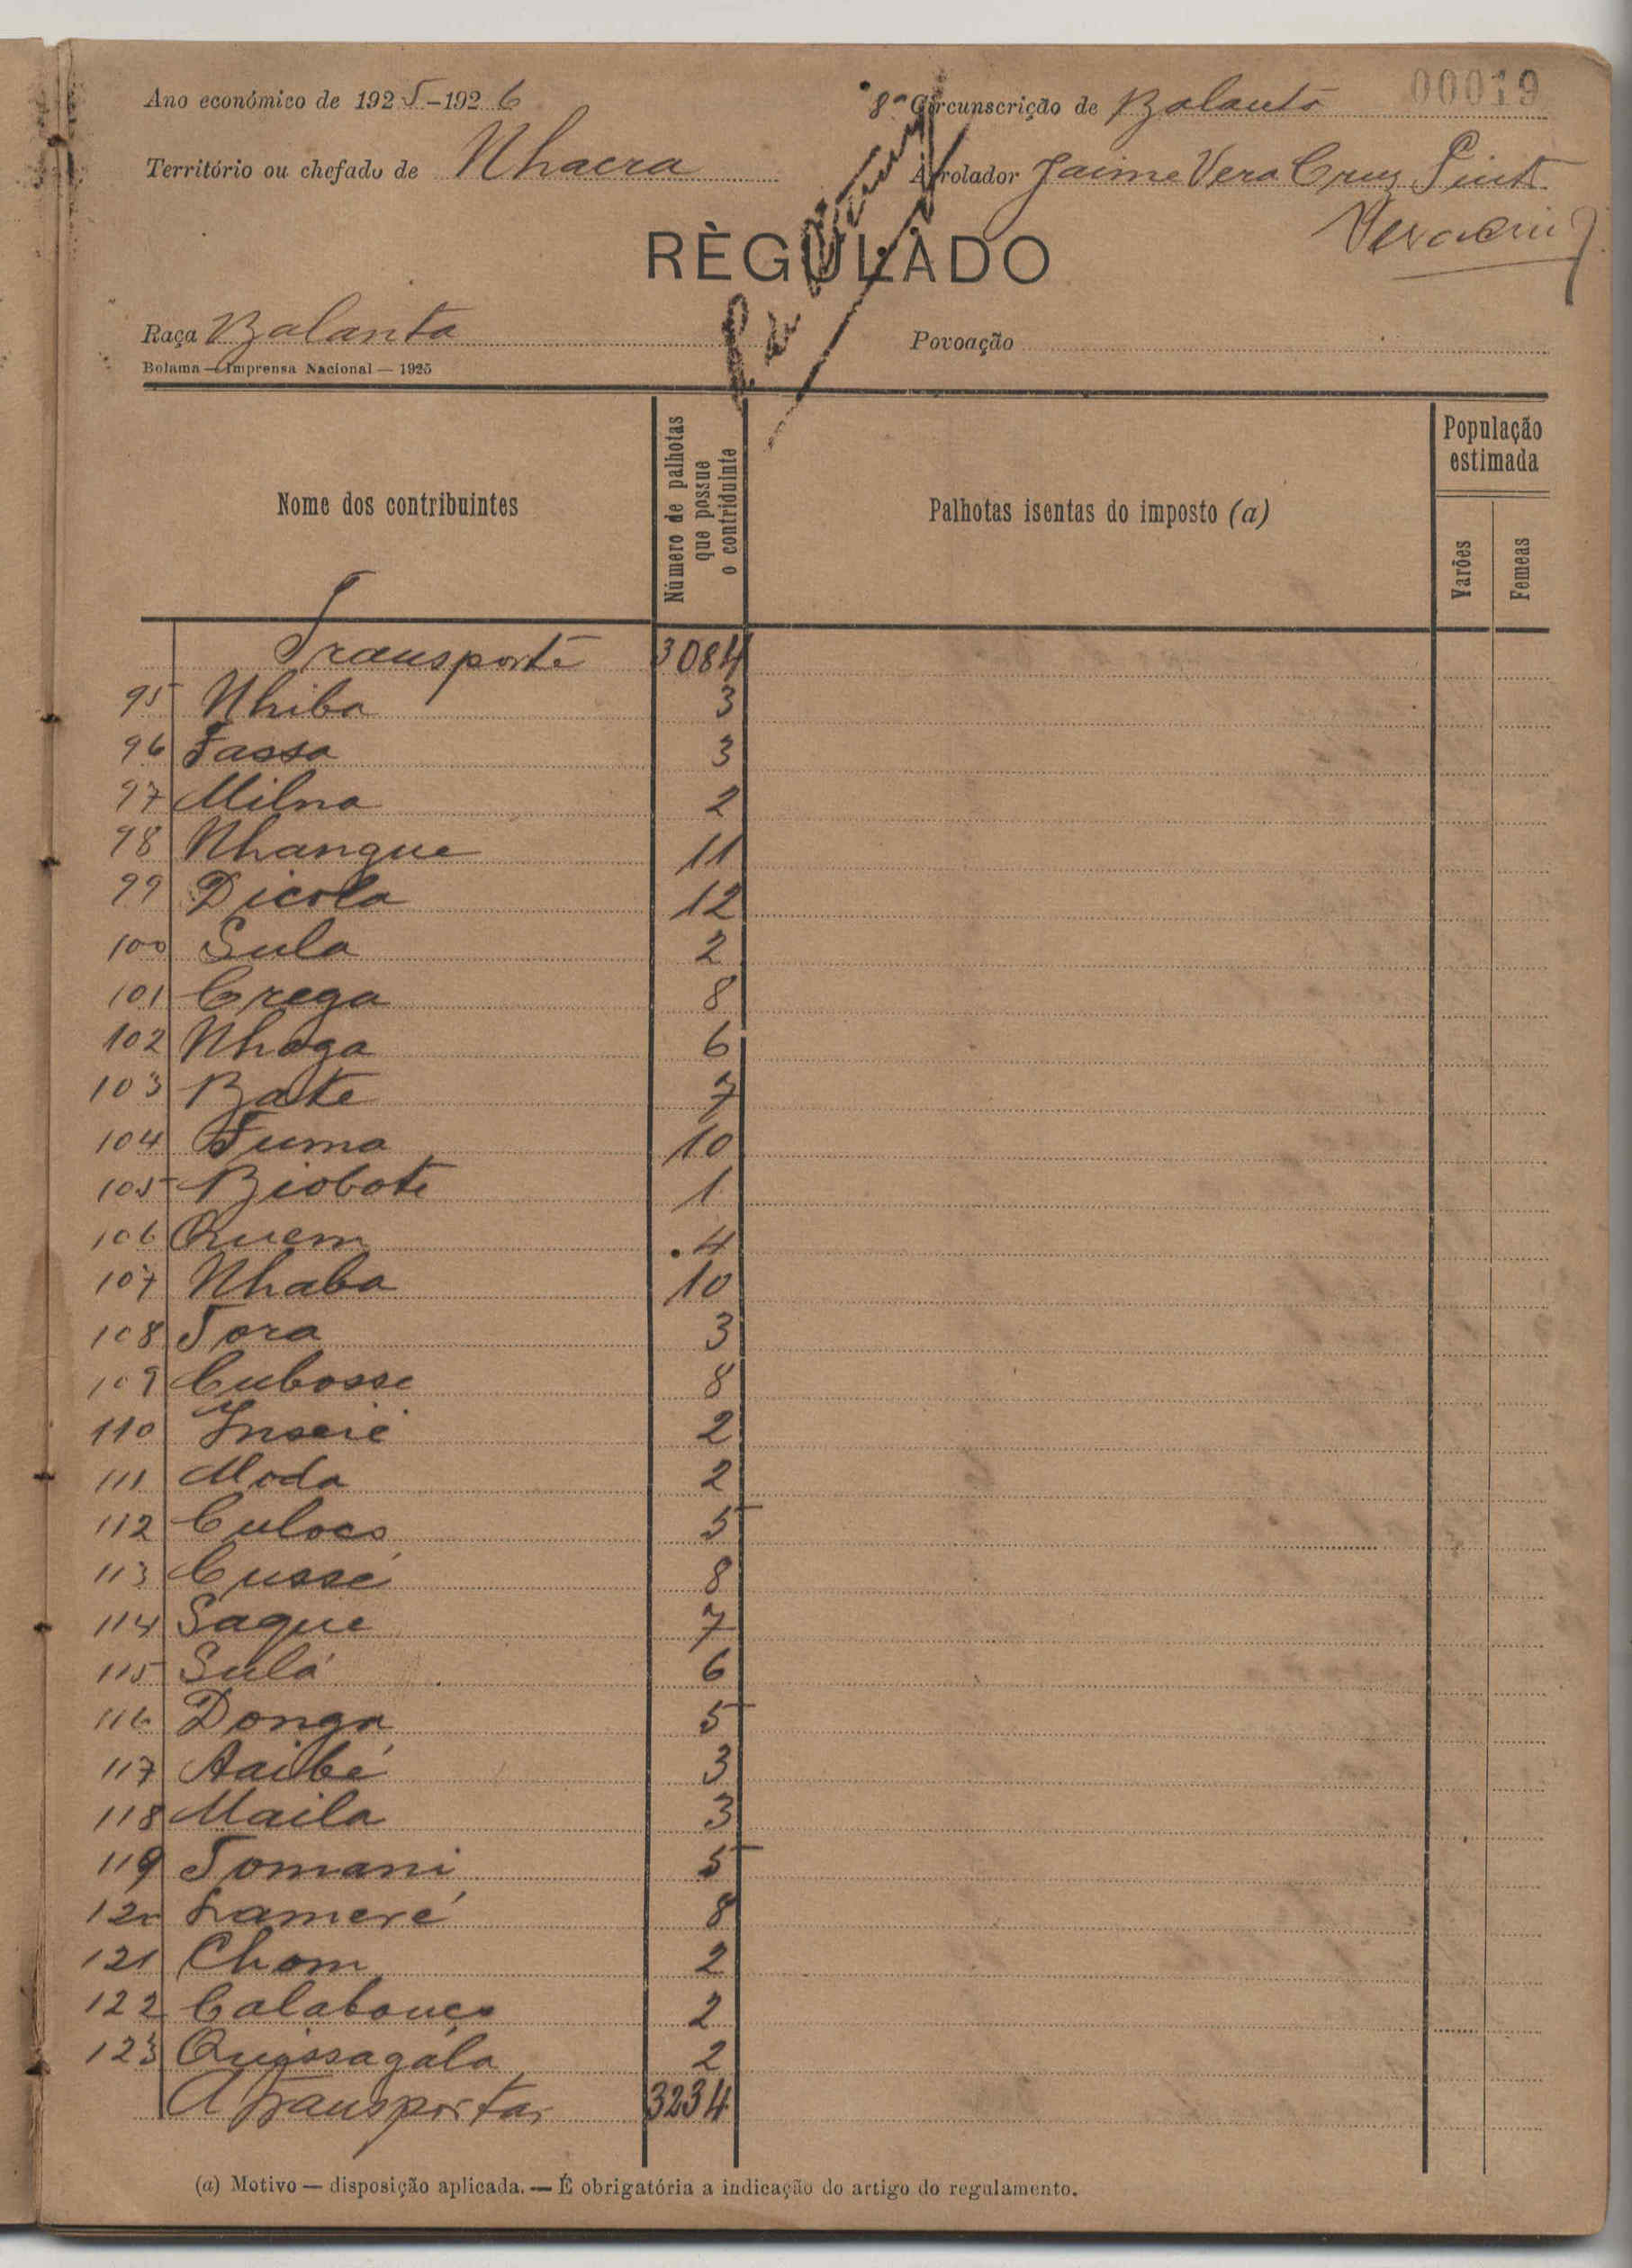 00019
Ano económico de 1925-1926
8ª Circunscrição de Balanta
Território ou chefado de Nhacra
Arrolador Jaime Vera Cruz Pinto
RÈGULADO
Raça Balanta
Povoação
Bolama — Imprensa Nacional — 1925
Nome dos contribuintes
Número de palhotas que possue o contriduinte
Palhotas isentas do imposto (a)
População estimada
Varões
Femeas
Transporte 3084
95 Nhiba 3
96 Fassa 3
97 Milna 2
98 Nhangue 11
99 Dicola 12
100 Sula 2
101 Crega 8
102 Nhaga 6
103 Bate 7
104 Fuma 10
105 Biobote 1
106 Quem 4
107 Nhaba 10
108 Tora 3
109 Cubosse 8
110 2
111 Moda 2
112 5
113 Cussé 8
114 Sague 7
115 Sulá 6
116 Donga 5
117 Aaibé 3
118 Maila 3
119 Tomani 5
120 Lameré 8
121 Chom 2
122 Calabouço 2
123 Quissagála 2
A Transportar 3234
(a) Motivo — disposição aplicada. — É obrigatória a indicação do artigo do regulamento.